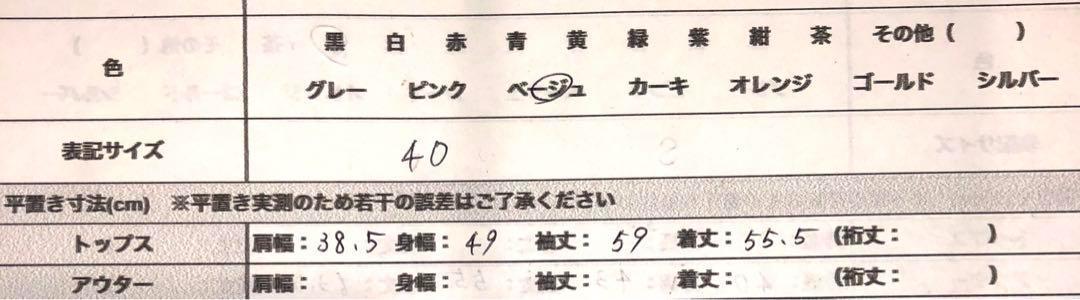 黒 白 赤 青 黄 緑 紫 紺 茶 その他（ ）
色
グレー ピンク ベージュ カーキ オレンジ ゴールド シルバー
表記サイズ 40
平置き寸法(cm) ※平置き実測のため若干の誤差はご了承ください
トップス 肩幅：38.5 身幅：49 袖丈：59 着丈：55.5 （裄丈： ）
アウター 肩幅： 身幅： 袖丈： 着丈： （裄丈： ）